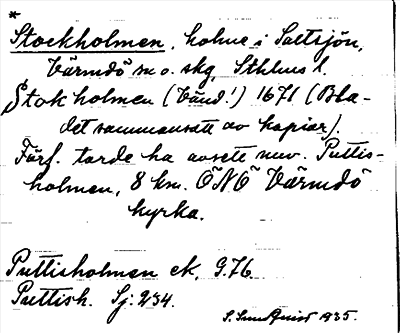 *
Stockholmen, holme i Saltsjön,
Värmdö sn o. skg, Sthlms l.
Stokholmen (Vänd!) 1671 (Bla-
det sammansatt av kopior).
Förf. torde ha avsett nuv. Puttis-
holmen, 8 km. ÖNÖ Värmdö
kyrka.
Puttisholmen ek. G.76.
Puttish. Sj: 234.
1935.